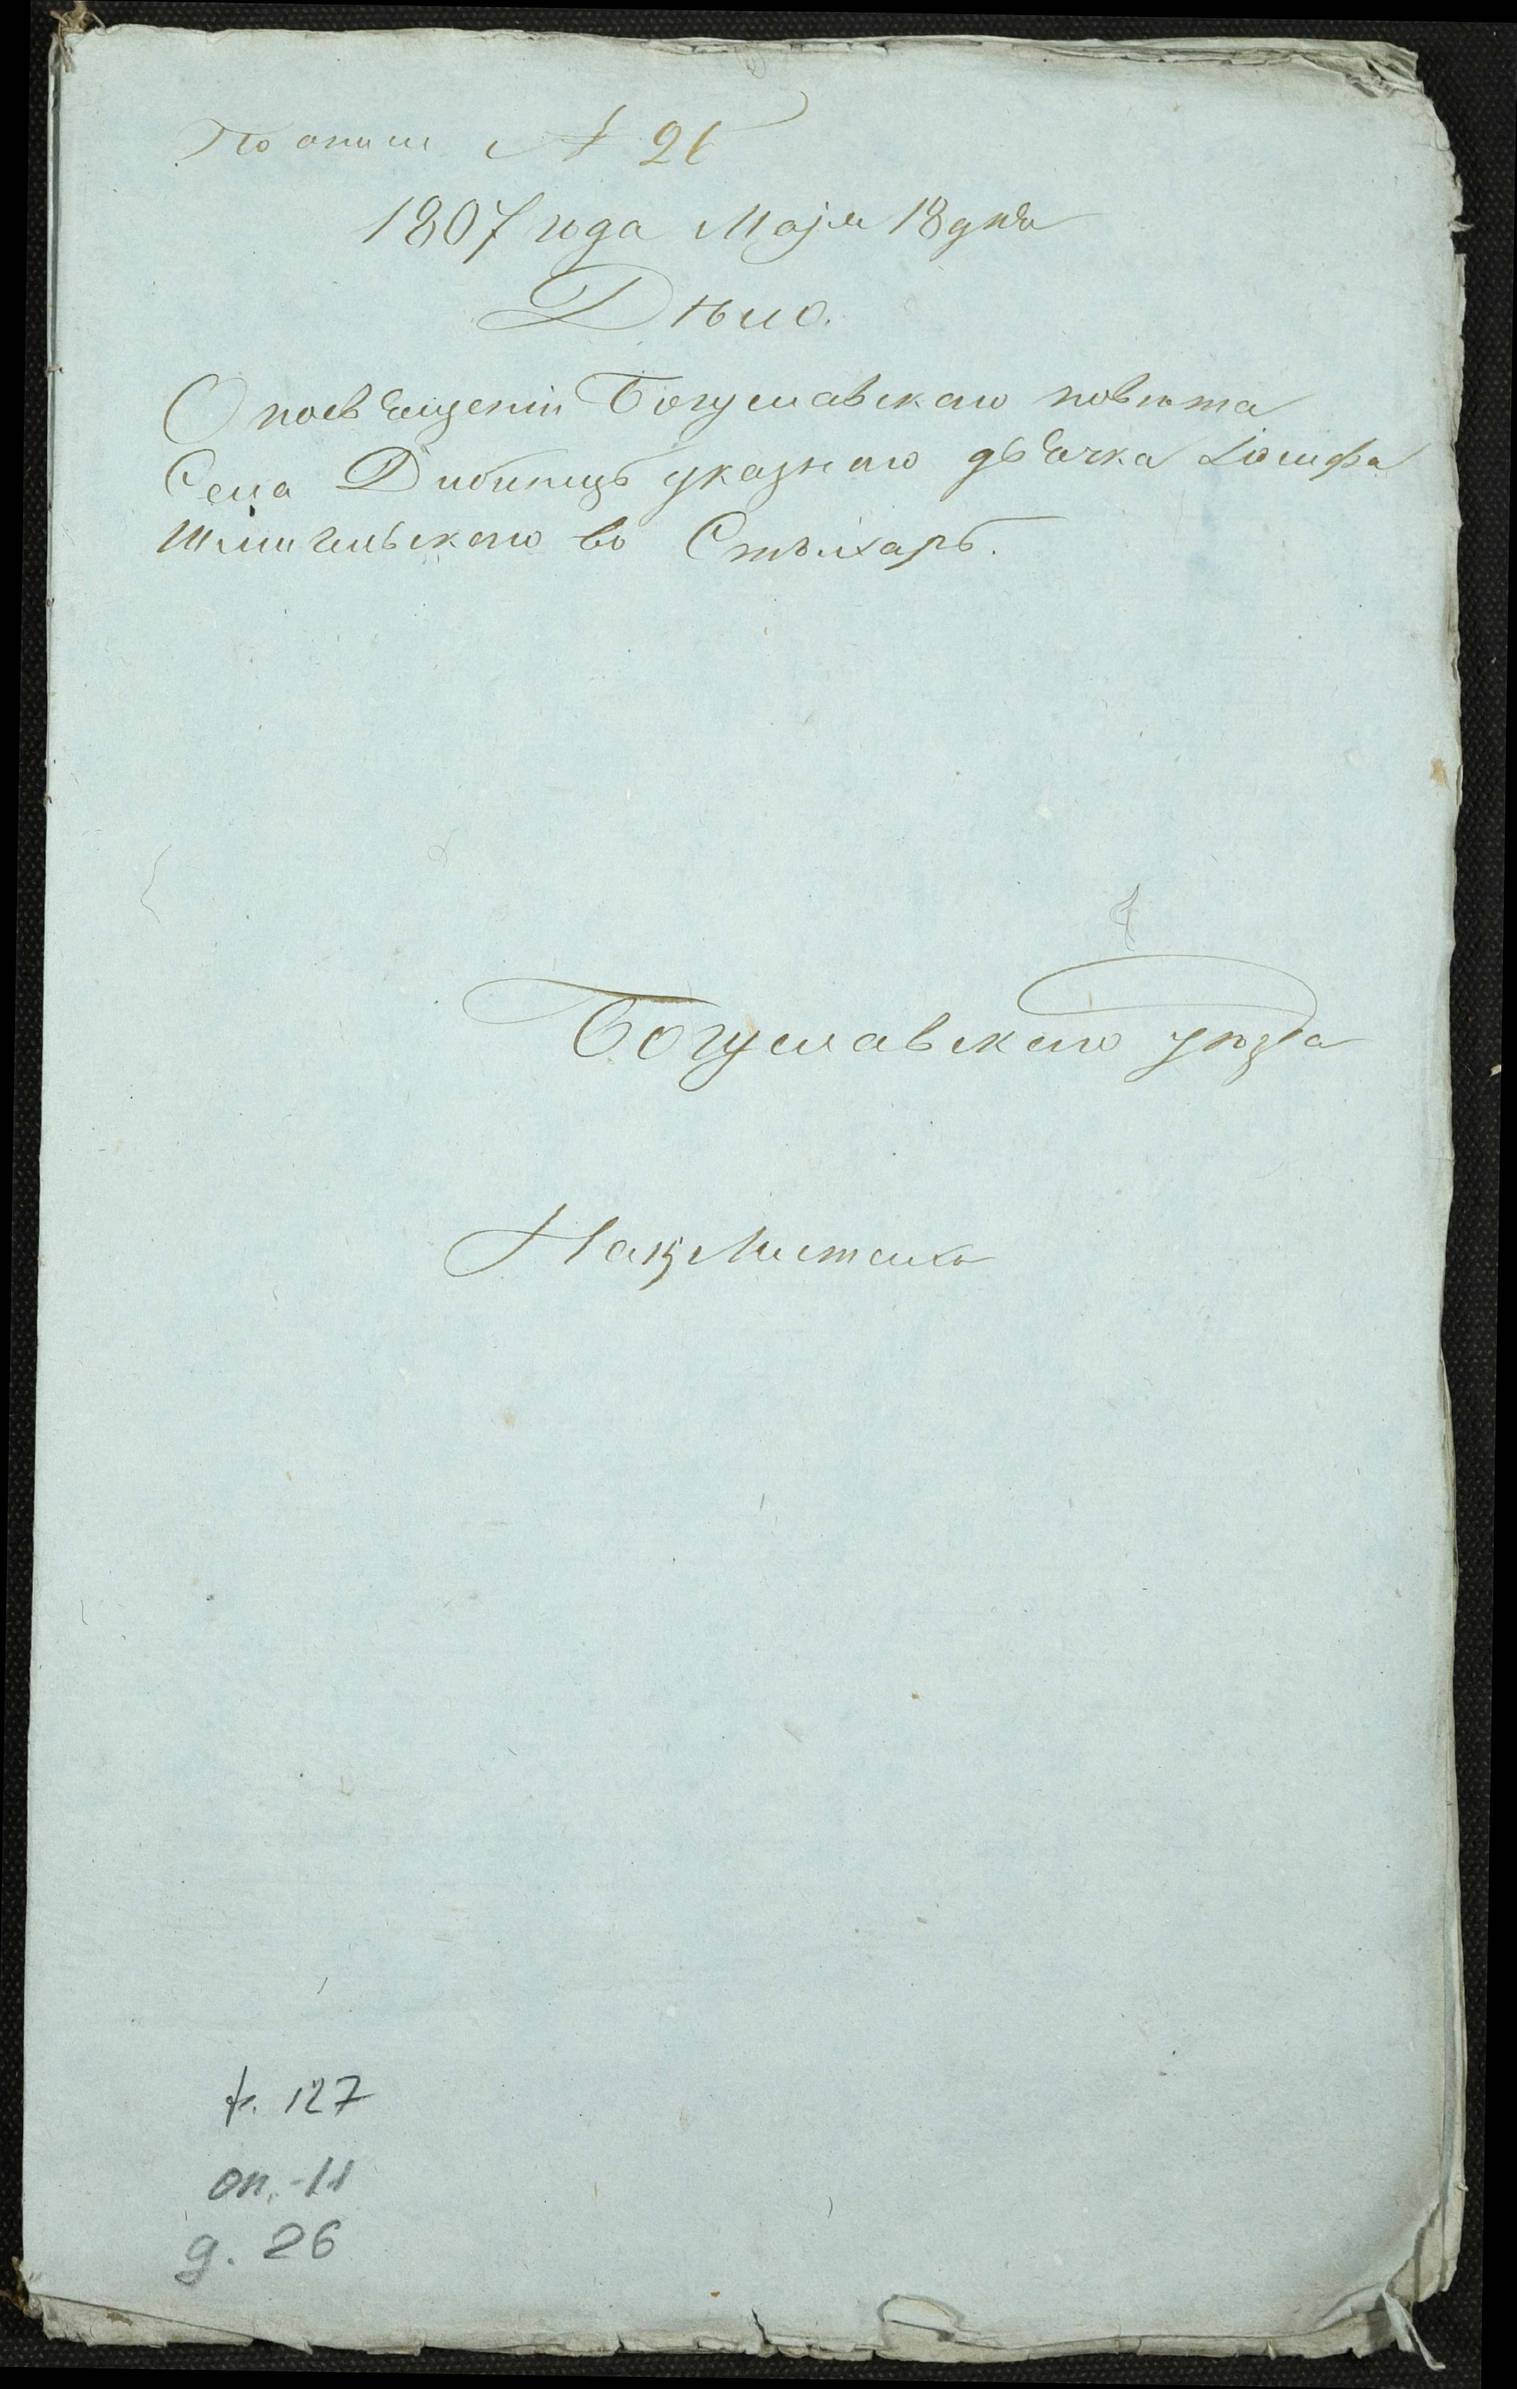 По описи № 26
1807 года Маjя 18 дня
Дѣло.
О посвящении Богуславскаго повѣта
Села Дибинцъ указного дьячка Іосифа
во Стыхарь.
Богуславского уѣзда
На 15 Листахъ
ф. 127
оп. - 11
д. 26